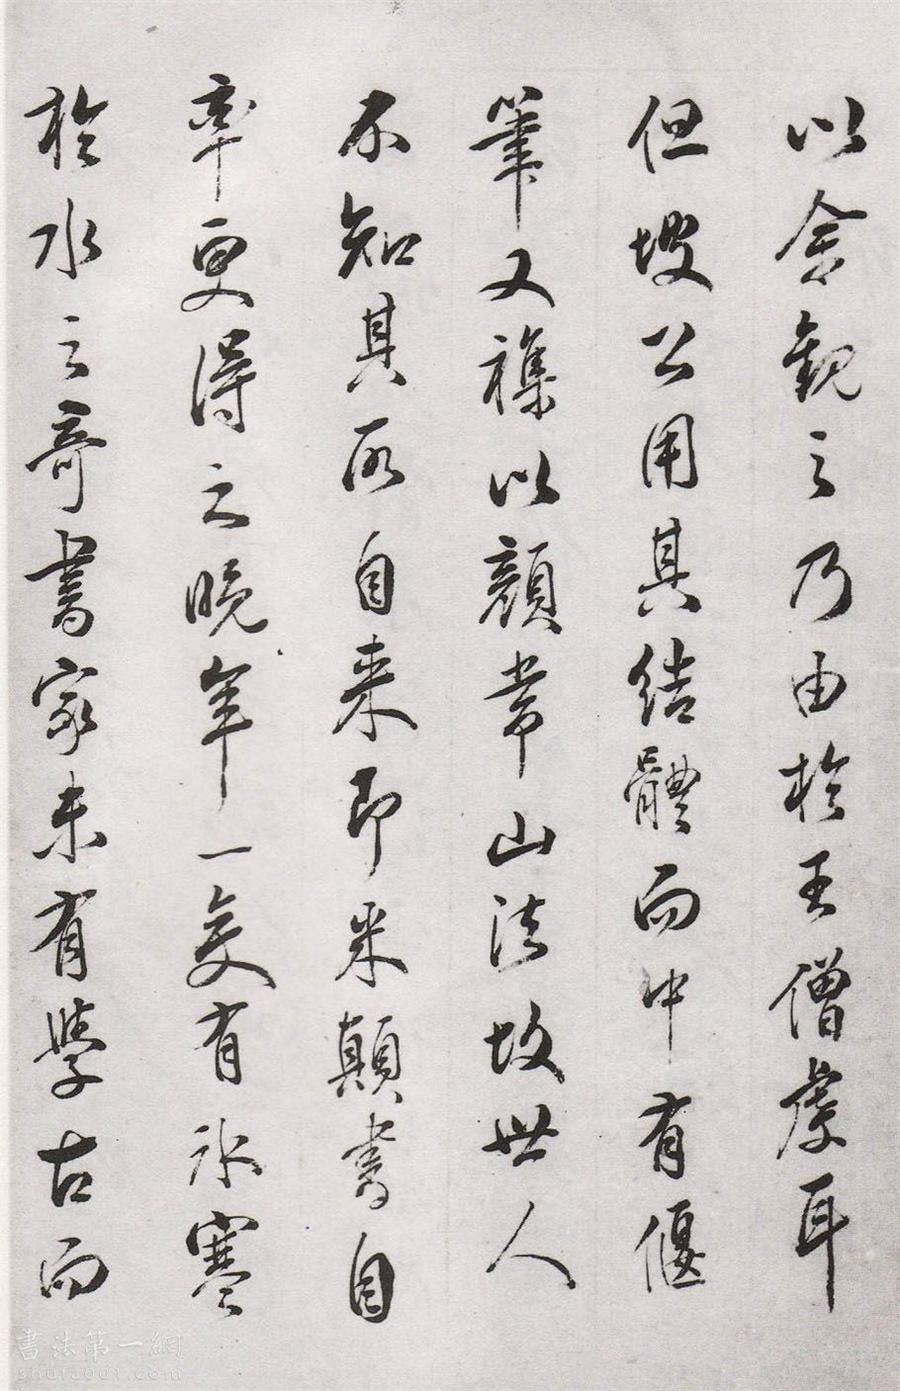 以余觀之乃由於王僧虔耳
但坡公用其結體而中有偃
筆又襍以顏常山法故世人
不知其所自来即米顛書自
率更得之晚年一變有氷寒
於水之奇書家未有學古而
書法第一網
shufa001.com